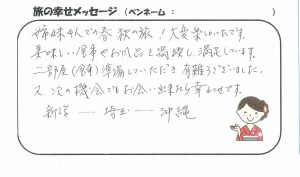 旅の幸せメッセージ (ペンネーム : )
姉妹4人での春秋の旅!大変楽しいたです。
美味しい食事やお風呂を満喫し、満足しています。
二部屋(食事)準備していただき有難うございました。
又、次の機会でもお会い出来たら幸わせです。
新潟 ― 埼玉 ― 沖縄